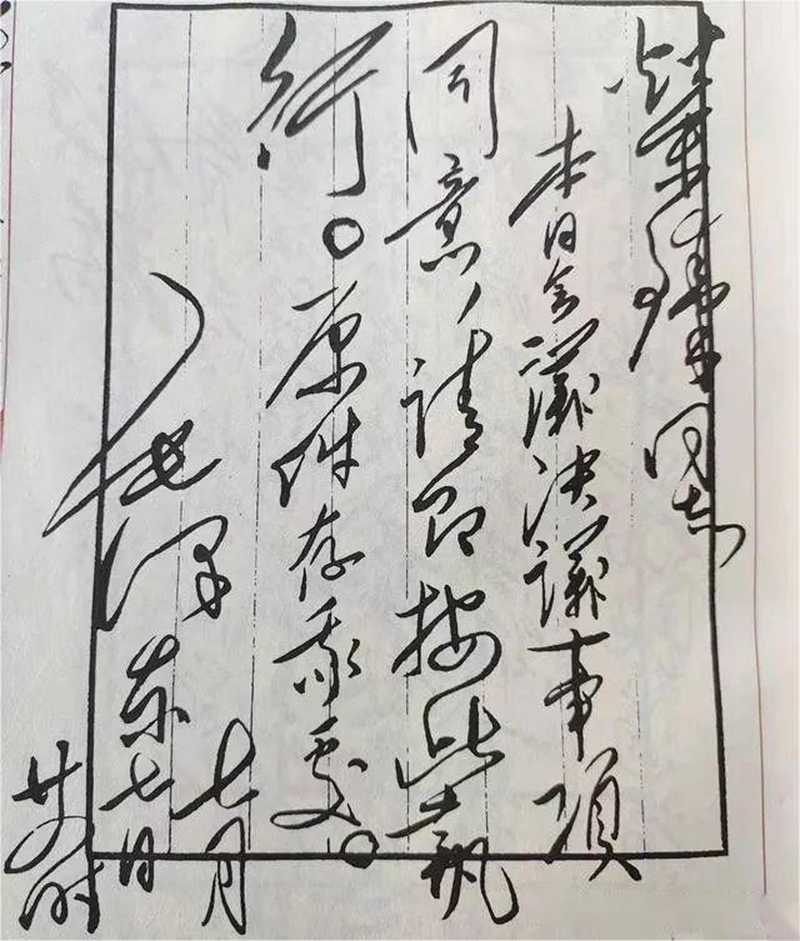 荣臻同志
本日会议决议事项
同意，请即按此执
行。原件存我处。
毛泽东 七月
七日
廿四时